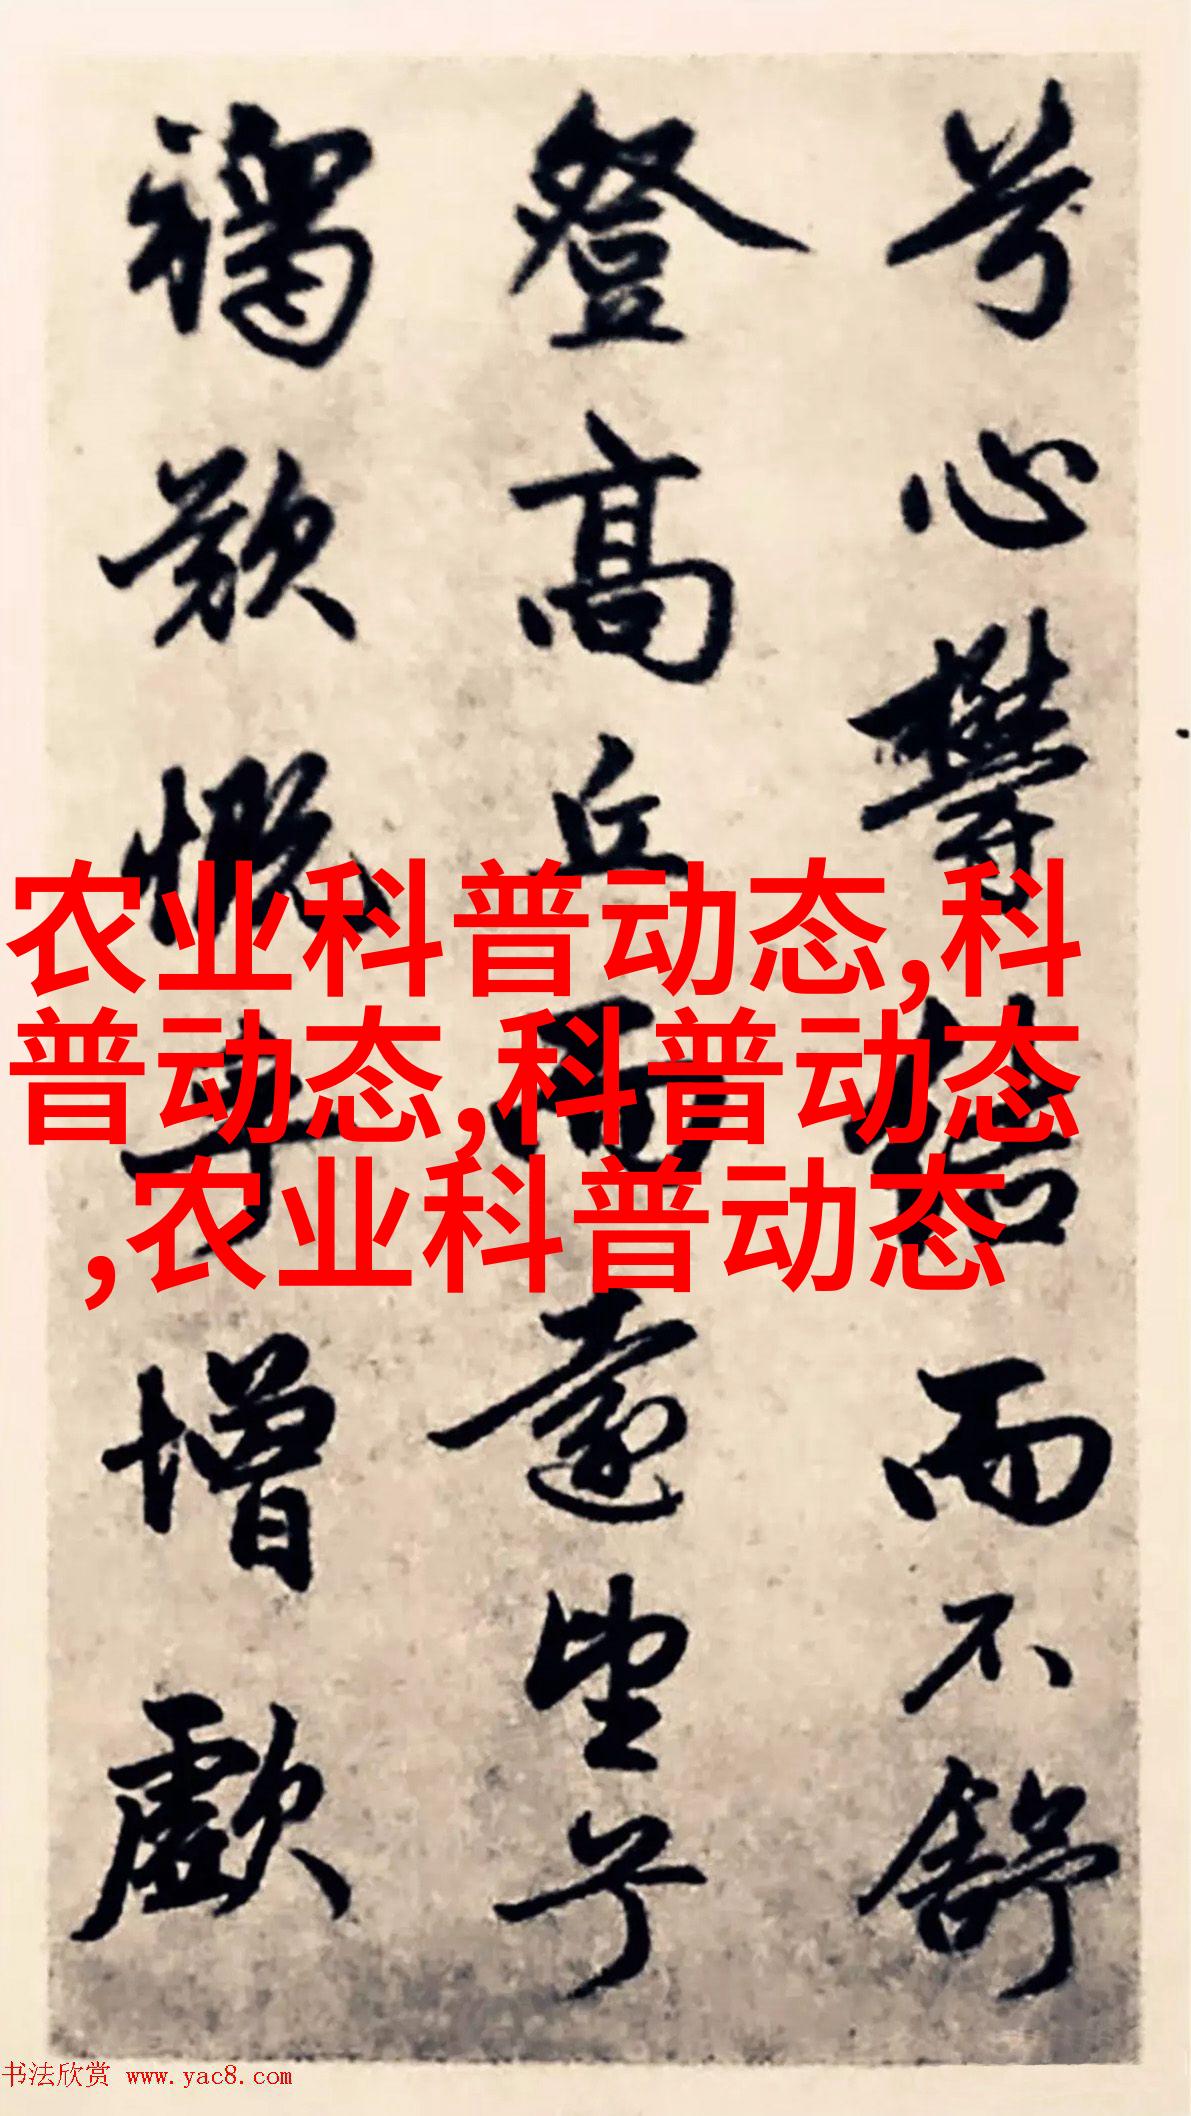 兮心鬱結而不舒
登高丘而遠望兮
增歔
农业科普动态,科
普动态,科普动态
,农业科普动态
书法欣赏 www.yac8.com